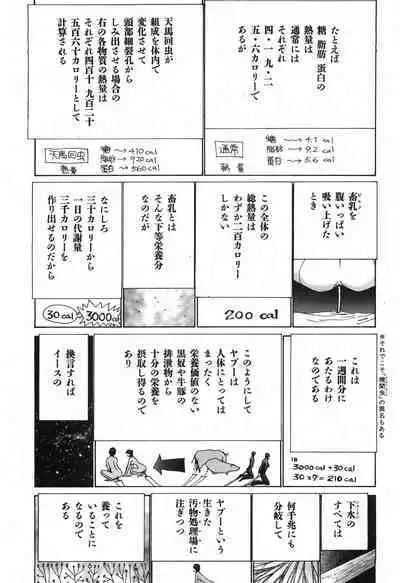 たとえば
糖 脂肪 蛋白の
熱量は
通常には
それぞれ
四・一 九・二
五・六カロリーで
あるが
糖 〜→ 4.1 cal
通常
脂肪 〜→ 9.2 cal
熱量
蛋白 〜→ 5.6 cal
天馬回虫が
組成を体内で
変化させて
頭部細裂孔から
しみ出させる場合の
右の各物質の熱量は
それぞれ四百十 九百二十
五百六十カロリーとして
計算される
糖 〜→ 410 cal
天馬回虫
脂肪 〜→ 920 cal
熱量
蛋白 〜→ 560 cal
畜乳を
腹いっぱい
吸い上げた
とき
この全体の
総熱量は
わずか二百カロリー
しかない
200 cal
畜乳とは
そんな下等栄養分
なのだが
なにしろ
三十カロリーから
一日の代謝量
三千カロリーを
作り出せるのだから
30 cal
3000 cal
※それでこそ“機関虫”の異名もある
これは
一週間分に
あたるわけ
なのである
3000 cal→30 cal
30×7=210 cal
このようにして
ヤプーは
人体にとっては
まったく
栄養価値のない
黒奴や牛豚の
排泄物から
十分の栄養を
摂取し得るので
あり
換言すれば
イースの
下水の
すべては
何千兆にも
分岐して
ヤプーという
生きた
汚物処理場に
注ぎつつ
これを
養って
いることに
なるので
ある